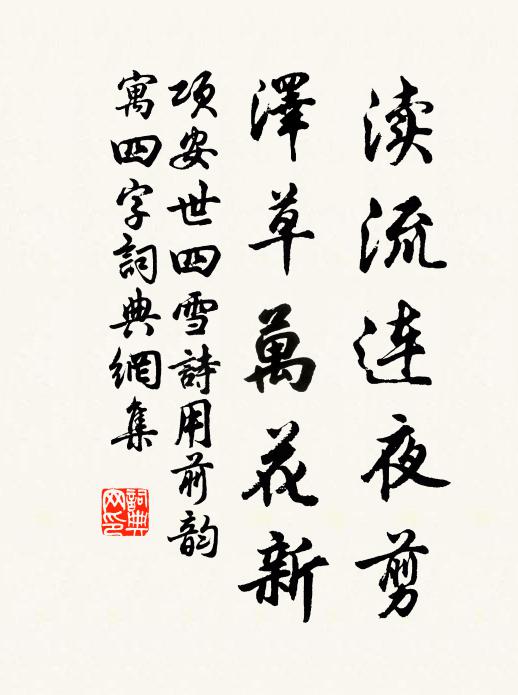 渎流连夜剪
澤草萬花新
項安世四雪詩用前韵
寓四字詞典網集
詞典网印